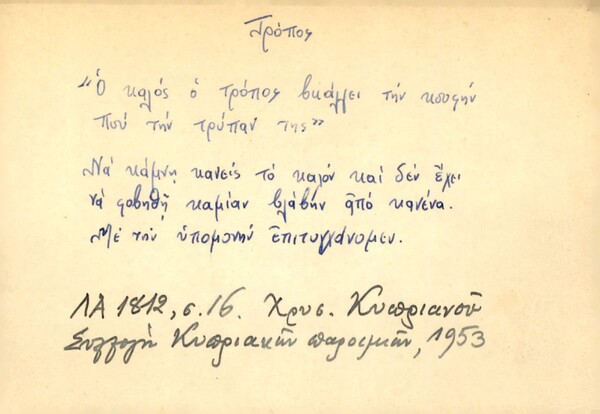 Τρόπος
"Ὁ καλός ὁ τρόπος βκάλλει τήν κουφήν
πού τήν τρύπαν της"
Νά κάμνῃ κανείς τό καλόν καί δέν ἔχει
νά φοβηθῇ καμίαν βλάβην ἀπό κανένα.
Μέ τήν ὑπομονήν ἐπιτυγχάνομεν.
ΛΑ 1812, σ. 16. Χρυσ. Κυπριανοῦ
Συλλογὴ Κυπριακῶν παροιμιῶν, 1953